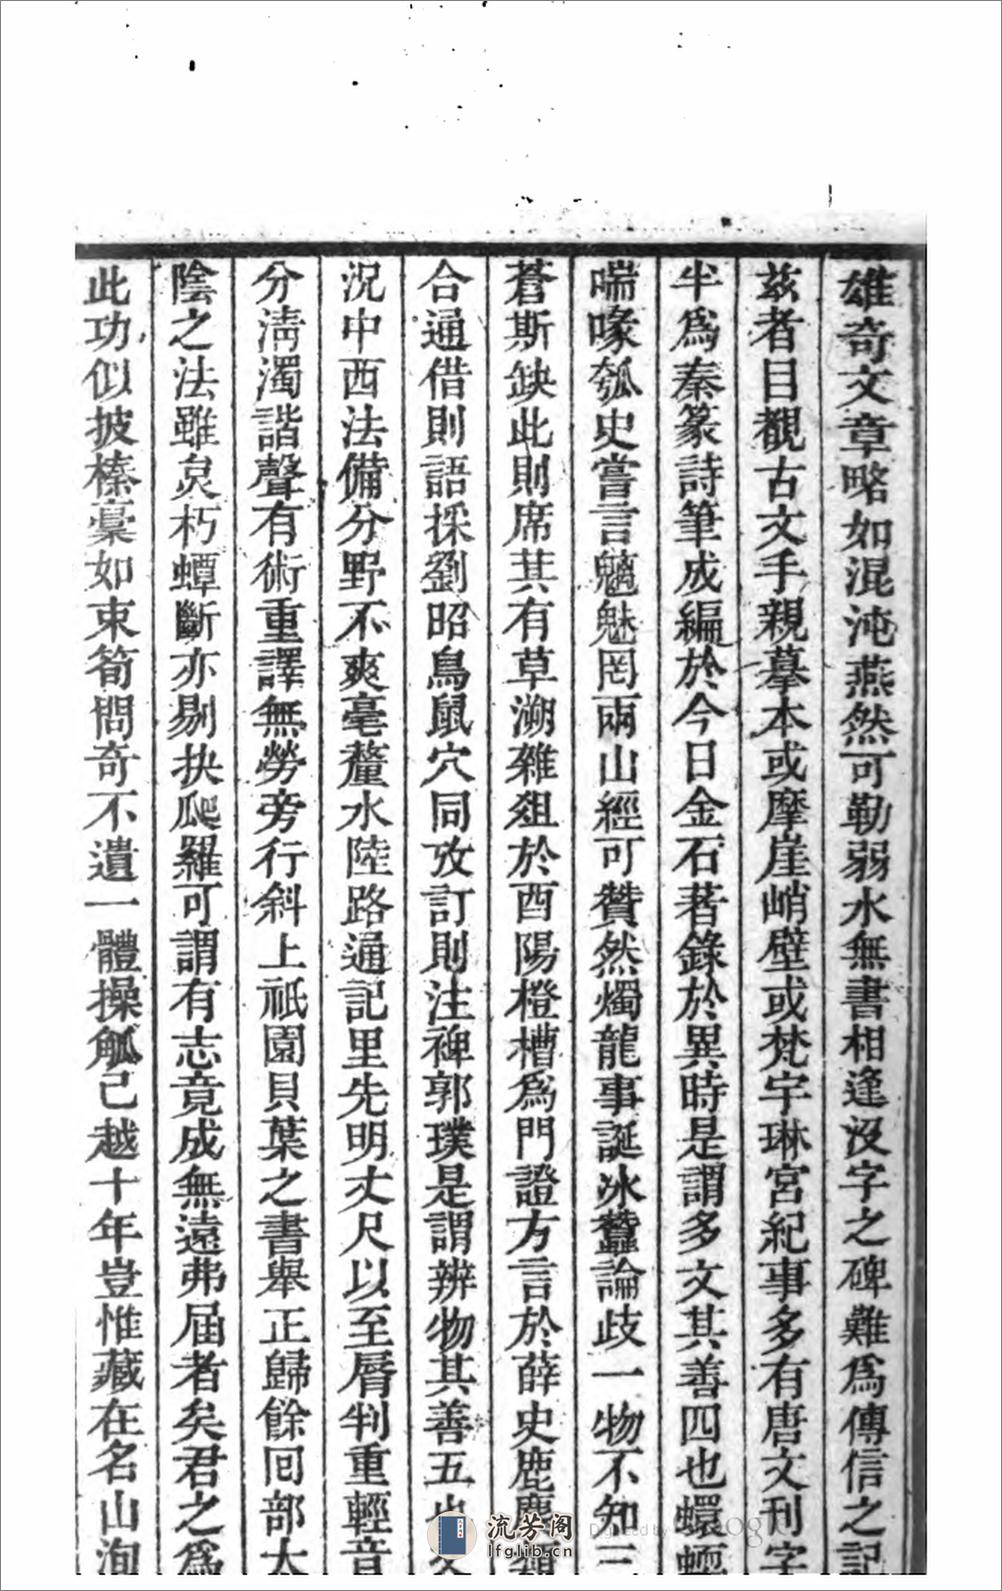 雄奇文章略如混沌燕然可勒弱水無書相逢沒字之碑難爲傳信之記
茲者目覩古文手親摹本或摩崖峭壁或梵宇琳宮紀事多有唐文刊字
半爲秦篆詩筆成編於今日金石著錄於異時是謂多文其善四也蠉蝡
喘喙瓠史嘗言魑魅罔兩山經可贊然燭龍事誕冰蠶論歧一物不知三
蒼斯缺此則席其有草溯雜俎於酉陽橙槽爲門證方言於薛史鹿麃
合通借則語採劉昭鳥鼠穴同攷訂則注裨郭璞是謂辨物其善五也
況中西法備分野不爽毫釐水陸路通記里先明丈尺以至脣判重輕音
分淸濁諧聲有術重譯無勞旁行斜上祇園貝葉之書舉正歸餘回部太
陰之法雖炱朽蟫斷亦剔抉爬羅可謂有志竟成無遠弗屆者矣君之爲
此功似披榛櫜如束筍問奇不遺一體操觚已越十年豈惟藏在名山洵
流芳阁
lfglib.cn
Digitized by Google